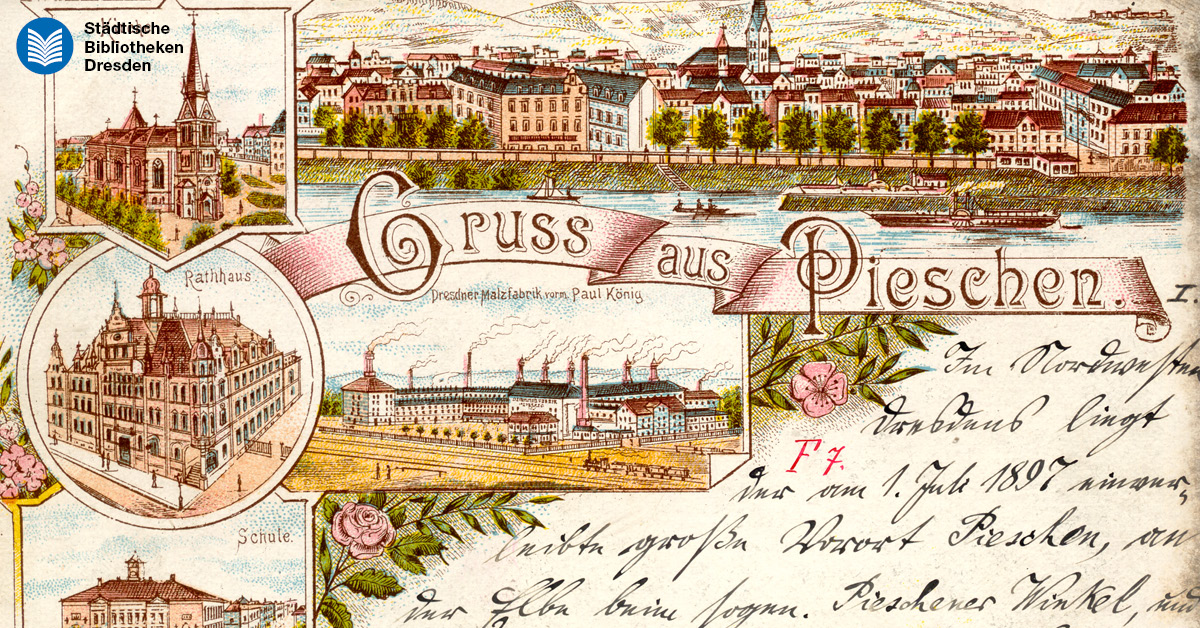 Städtische
Bibliotheken
Dresden
Gruss aus Pieschen.
Rathhaus.
Dresdner Malzfabrik vorm. Paul König
Schule.
I
F 7.
Im Nordwesten
Dresdens liegt
der am 1. Juli 1897 einver-
leibte große Vorort Pieschen, an
der Elbe beim sogen. Pieschener Winkel, und